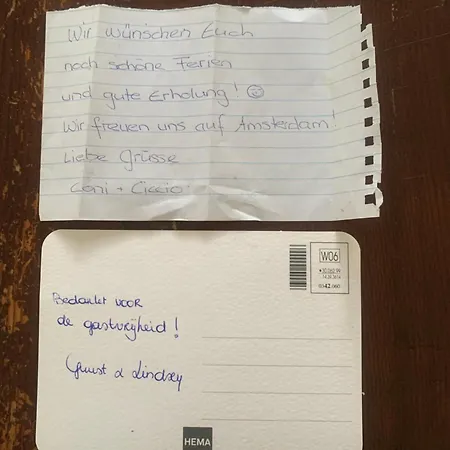 Wir wünschen Euch
noch schöne Ferien
und gute Erholung!
Wir freuen uns auf Amsterdam!
Liebe Grüsse
Coni + Ciccio
W06
Bedankt voor
de gastvrijheid!
Guust & Lindsey
HEMA